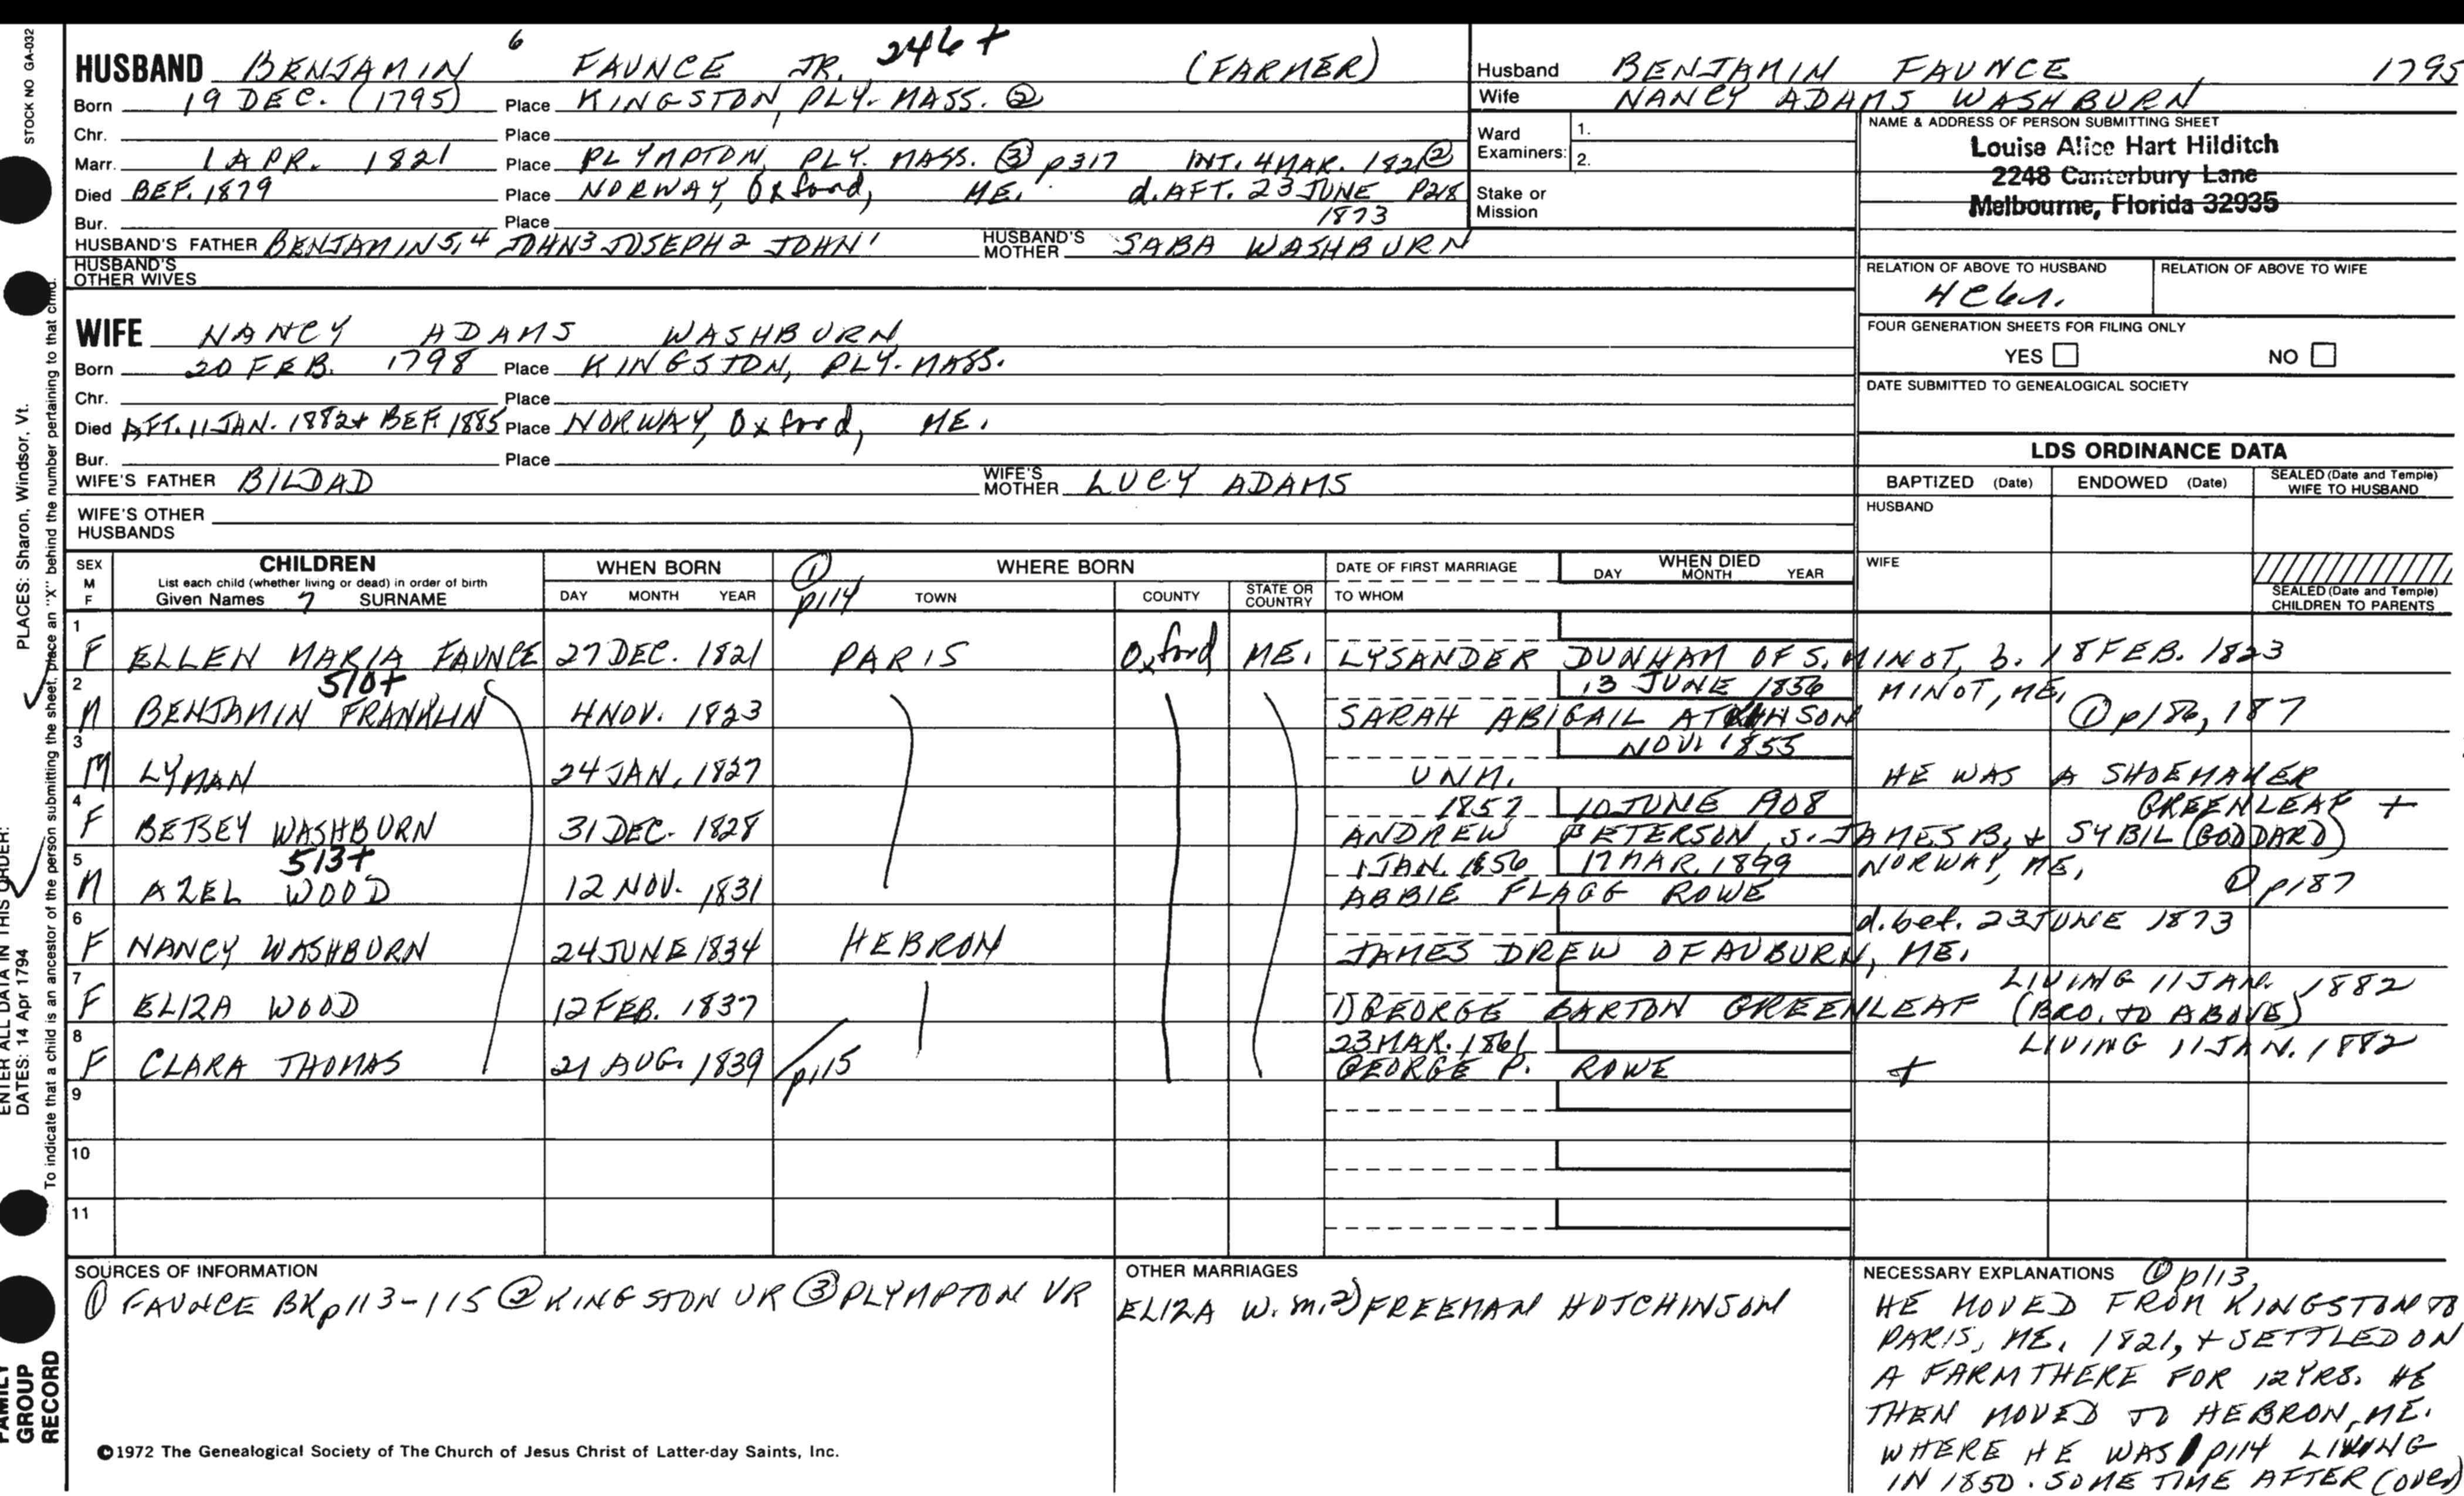 HUSBAND BENJAMIN 6 FAUNCE JR. 246+ (FARMER)
Born 19 DEC. (1795) Place KINGSTON, PLY. MASS. ②
Chr. Place
Marr. 1 APR. 1821 Place PLYMPTON, PLY. MASS. ③ p317 INT. 4 MAR. 1821 ②
Died BEF. 1879 Place NORWAY, Oxford, ME. d. AFT. 23 JUNE P218
1873
Bur. Place
HUSBAND'S FATHER BENJAMIN 5,4 JOHN3 JOSEPH2 JOHN1 HUSBAND'S MOTHER SABA WASHBURN
HUSBAND'S OTHER WIVES
WIFE NANCY ADAMS WASHBURN
Born 20 FEB. 1798 Place KINGSTON, PLY. MASS.
Chr. Place
Died AFT. 11 JAN. 1882 + BEF. 1885 Place NORWAY, Oxford, ME.
Bur. Place
WIFE'S FATHER BILDAD WIFE'S MOTHER LUCY ADAMS
WIFE'S OTHER HUSBANDS
Husband BENJAMIN FAUNCE, 1795
Wife NANCY ADAMS WASHBURN
Ward Examiners: 1. 2.
Stake or Mission
NAME & ADDRESS OF PERSON SUBMITTING SHEET
Louise Alice Hart Hilditch
2248 Canterbury Lane
Melbourne, Florida 32935
RELATION OF ABOVE TO HUSBAND RELATION OF ABOVE TO WIFE
FOUR GENERATION SHEETS FOR FILING ONLY
YES NO
DATE SUBMITTED TO GENEALOGICAL SOCIETY
LDS ORDINANCE DATA
BAPTIZED (Date) ENDOWED (Date) SEALED (Date and Temple) WIFE TO HUSBAND
HUSBAND
WIFE
SEALED (Date and Temple) CHILDREN TO PARENTS
SEX M F CHILDREN List each child (whether living or dead) in order of birth Given Names 7 SURNAME
WHEN BORN DAY MONTH YEAR
① p114 WHERE BORN TOWN COUNTY STATE OR COUNTRY
DATE OF FIRST MARRIAGE TO WHOM
WHEN DIED DAY MONTH YEAR
1 F ELLEN MARIA FAUNCE 27 DEC. 1821 PARIS Oxford ME. LYSANDER DUNHAM OF S. MINOT, b. 18 FEB. 1823
13 JUNE 1856 MINOT, ME.
2 M 510+ BENJAMIN FRANKLIN 4 NOV. 1823 SARAH ABIGAIL ATKINSON ① p186, 187
NOV. 1855
3 M LYMAN 24 JAN. 1827 UNM. HE WAS A SHOEMAKER
1857 10 JUNE 1908 GREENLEAF +
4 F BETSEY WASHBURN 31 DEC. 1828 ANDREW PETERSON, s. JAMES B. + SYBIL (GODDARD)
1 JAN. 1856 17 MAR. 1899 NORWAY, ME.
5 M 513+ AZEL WOOD 12 NOV. 1831 ABBIE FLAGG ROWE ① p187
d. bef. 23 JUNE 1873
6 F NANCY WASHBURN 24 JUNE 1834 HEBRON JAMES DREW OF AUBURN, ME.
LIVING 11 JAN. 1882
7 F ELIZA WOOD 12 FEB. 1837 1) GEORGE BARTON GREENLEAF (BRO. TO ABOVE)
23 MAR. 1861 LIVING 11 JAN. 1882
8 F CLARA THOMAS 21 AUG. 1839 p115 GEORGE P. ROWE +
9
10
11
SOURCES OF INFORMATION
① FAUNCE BK p113-115 ② KINGSTON VR ③ PLYMPTON VR
OTHER MARRIAGES
ELIZA W. m. 2) FREEMAN HUTCHINSON
NECESSARY EXPLANATIONS ① p113,
HE MOVED FROM KINGSTON TO
PARIS, ME. 1821, + SETTLED ON
A FARM THERE FOR 12 YRS. HE
THEN MOVED TO HEBRON, ME.
WHERE HE WAS p114 LIVING
IN 1850. SOME TIME AFTER (over)
©1972 The Genealogical Society of The Church of Jesus Christ of Latter-day Saints, Inc.
STOCK NO GA-032
PLACES: Sharon, Windsor, Vt.
ENTER ALL DATA IN THIS ORDER:
DATES: 14 Apr 1794
To indicate that a child is an ancestor of the person submitting the sheet, place an "X" behind the number pertaining to that child.
FAMILY
GROUP
RECORD